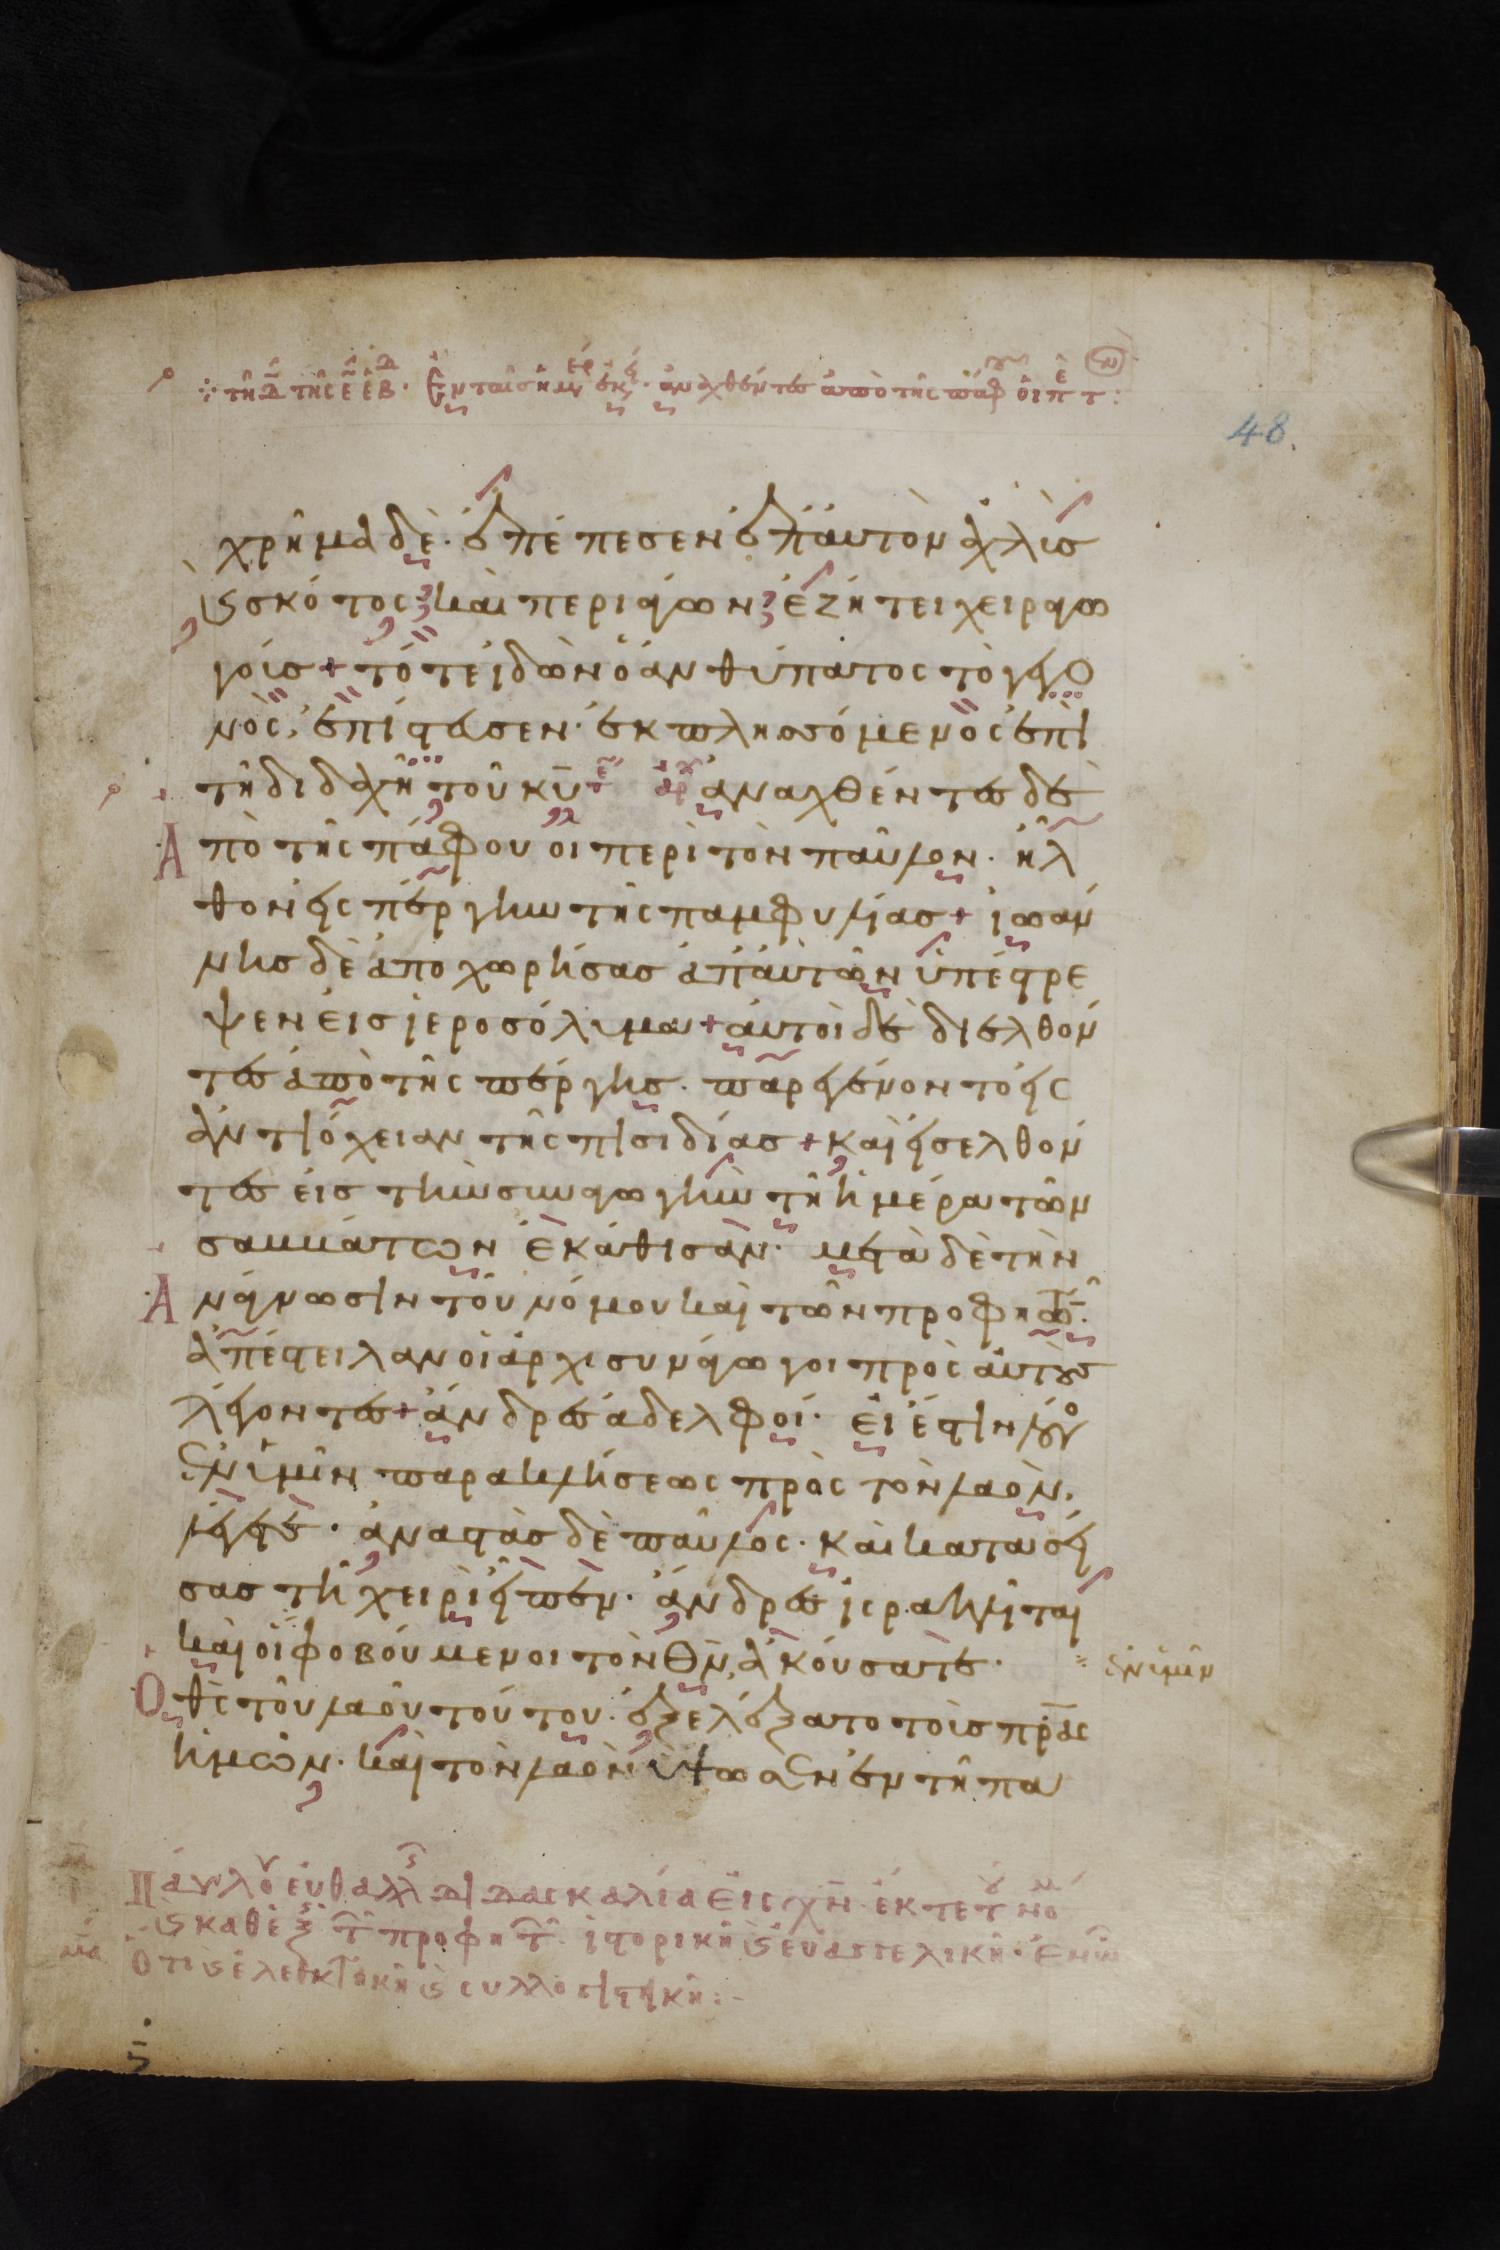 τῆ δ τῆς ε ἑβ. Ἐν ταῖς ἡμ ἐκ. ἀναχθέντες ἀπὸ τῆς πάφ οἱ π τ:
48.
χρῆμα δὲ. ἐπέπεσεν ἐπ' αὐτὸν ἀχλὺς
ϗ σκότος καὶ περιάγων ἐζήτει χειραγω
γούς + τότε ἰδὼν ὁ ἀνθύπατος τὸ γεγο
νὸς, ἐπίστευσεν. ἐκπλησσόμενος ἐπὶ
τῆ διδαχῆ τοῦ κ̅υ̅ τε ἀρχ ἀναχθέντες δὲ
Ἀπὸ τῆς πάφου οἱ περὶ τὸν παῦλον. ἦλ
θον εἰς πέργην τῆς παμφυλίας + ἰωάν
νης δὲ ἀποχωρήσας ἀπ' αὐτῶν ὑπέστρε
ψεν εἰς ἱεροσόλυμα + αὐτοὶ δὲ διελθόν
τες ἀπὸ τῆς πέργης. παρεγένοντο εἰς
ἀντιόχειαν τῆς πισιδίας + καὶ εἰσελθόν
τες εἰς τὴν συναγωγὴν τῆ ἡμέρα τῶν
σαββάτων ἐκάθισαν. μετὰ δὲ τὴν
Ἀνάγνωσιν τοῦ νόμου καὶ τῶν προφητῶ.
ἀπέστειλαν οἱ ἀρχισυνάγωγοι πρὸς αὐτοὺς
λέγοντες + ἄνδρες ἀδελφοί. εἰ ἔστιν λόγο
ἐν ὑμῖν παρακλήσεως πρὸς τὸν λαὸν,
λέγετε. ἀναστὰς δὲ παῦλος. καὶ κατασεί
σας τῆ χειρὶ εἶπεν. ἄνδρες ἰσραηλῖται
καὶ οἱ φοβούμενοι τὸν θ̅ν̅, ἀκούσατε.
ἐν ὑμῖν
Ὁ θ̅ς τοῦ λαοῦ τούτου. ἐξελέξατο τοὺς πρ̅ας
ἡμῶν. καὶ τὸν λαὸν ὕψωσεν ἐν τῆ πα
Παύλου εὐθαλὴς διδασκαλία εἰς χ̅ν̅ ἐκ τε τοῦ νόμ
ϗ καθεξ τ προφητ. ἱστορικὴ ϗ εὐαγγελικὴ. Ἐν ὧ
ὅτι ϗ ἐλεγκτικὴ ϗ συλλογιστικὴ:-